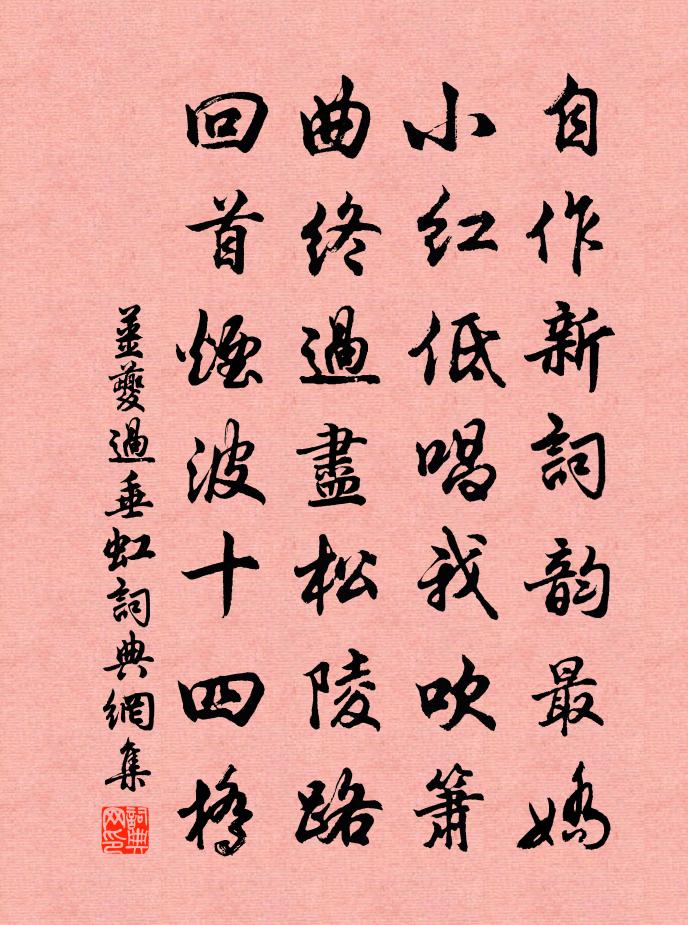 自作新詞韵最嬌
小紅低唱我吹簫
曲終過盡松陵路
回首煙波十四橋
姜夔過垂虹詞典網集
詞典
网印